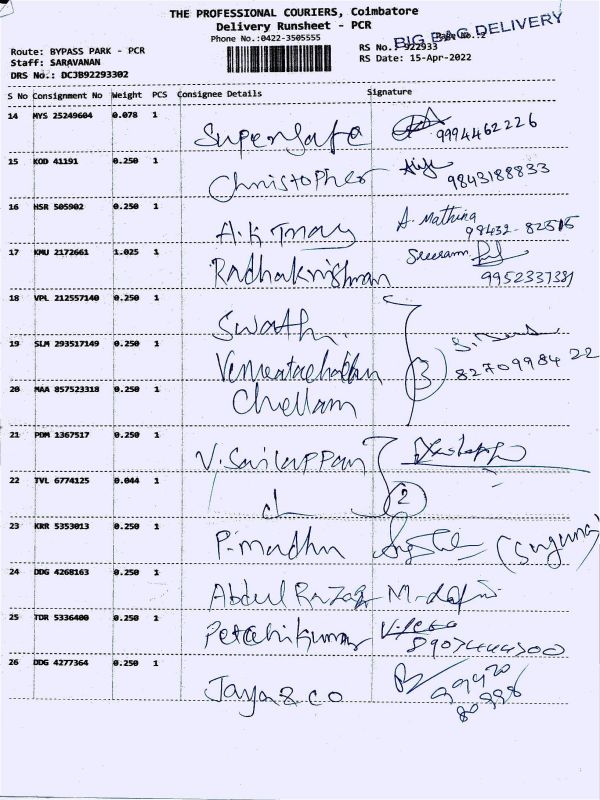 THE PROFESSIONAL COURIERS, Coimbatore
Delivery Runsheet - PCR
BIG BAG DELIVERY
Phone No.:0422-3505555
Route: BYPASS PARK - PCR
RS No.: 922933
Staff: SARAVANAN
RS Date: 15-Apr-2022
DRS No.: DCJ3B92293302
S No Consignment No Weight PCS Consignee Details Signature
14 MYS 25249604 0.078 1 Supersafa 9994462226
15 KOD 41191 0.250 1 Christopher 9843188833
16 HSR 505902 0.250 1 A.K Tmay A. Mathina 98432-82515
17 KMU 2172661 1.025 1 Radhakrishnan Sreeram 9952337381
18 VPL 212557140 0.250 1 Swathi
19 SLM 293517149 0.250 1 Venkatachallam 3 8270998422
20 MAA 857523318 0.250 1 Chellam
21 PDM 1367517 0.250 1 V. Sailappan
22 TVL 6774125 0.044 1 2
23 KRR 5353013 0.250 1 P. madhu (Suguna)
24 DDG 4268163 0.250 1 Abdul Razaq
25 TDR 5336400 0.250 1 Petchikumar 8907444300
26 DDG 4277364 0.250 1 Jaya & co 99420 80998